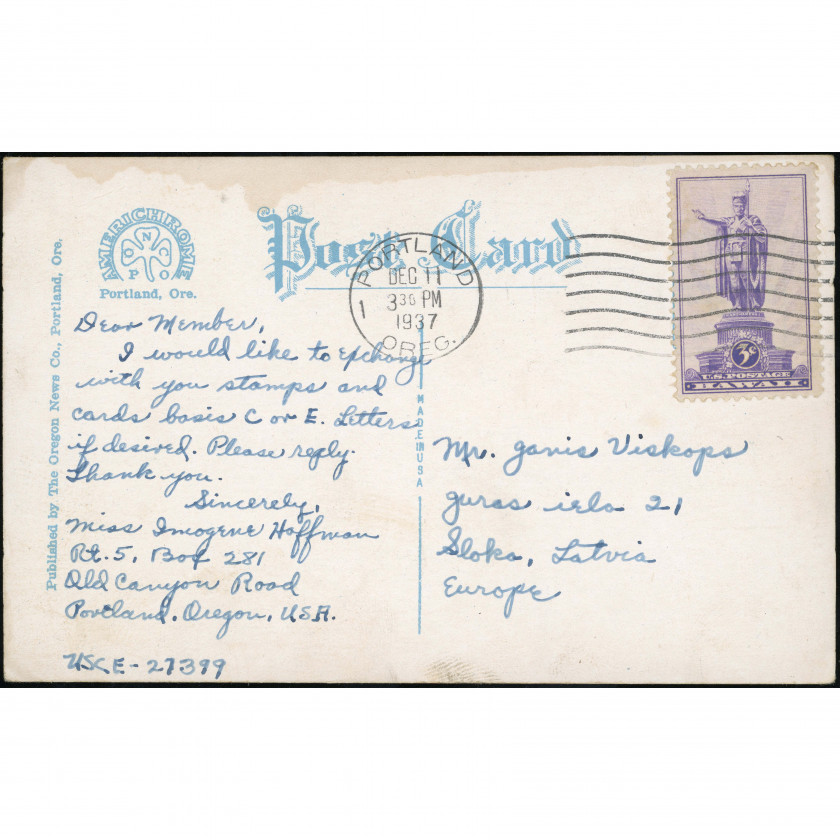 AMERICHROME
O N C
P O
Portland, Ore.
Post Card
PORTLAND
DEC 11
3 30 PM
1
1937
OREG.
3¢
U.S. POSTAGE
HAWAII
Published by The Oregon News Co., Portland, Ore.
MADE IN USA
Dear Member,
I would like to exchange
with you stamps and
cards basis C or E. Letters
if desired. Please reply.
Thank you.
Sincerely,
Miss Imogene Hoffman
Rt. 5, Box 281
Old Canyon Road
Portland, Oregon, USA.
USCE-27399
Mr. Janis Viskops
Juras iela 21
Sloka, Latvia
Europe